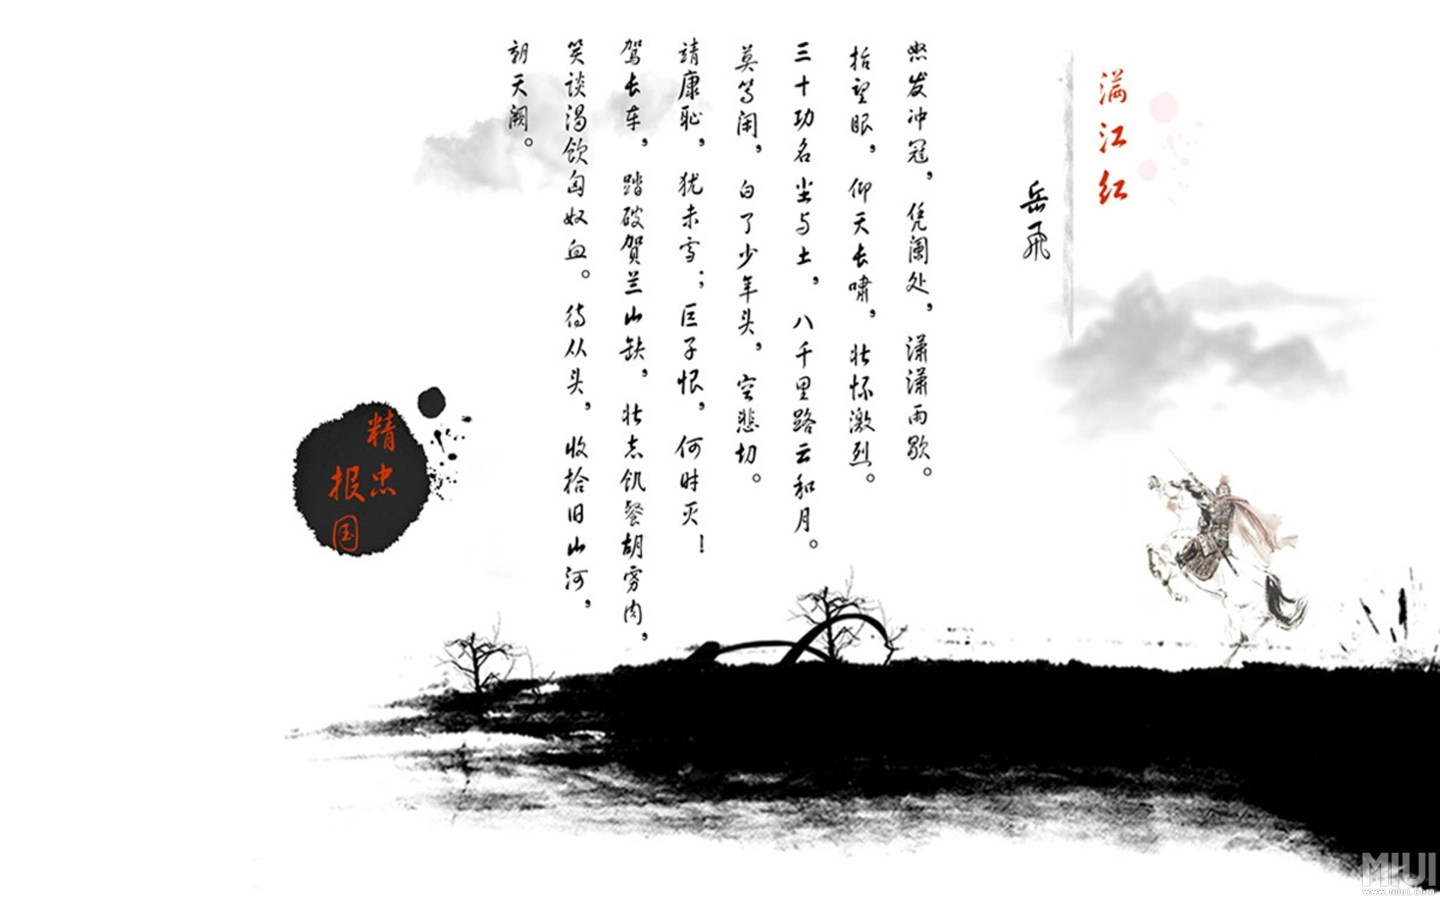 满江红
岳飛
怒发冲冠，凭阑处，潇潇雨歇。
抬望眼，仰天长啸，壮怀激烈。
三十功名尘与土，八千里路云和月。
莫等闲，白了少年头，空悲切。
靖康耻，犹未雪；臣子恨，何时灭！
驾长车，踏破贺兰山缺，壮志饥餐胡虏肉，
笑谈渴饮匈奴血。待从头，收拾旧山河，
朝天阙。
精忠
报国
MIUI
www.miui.com